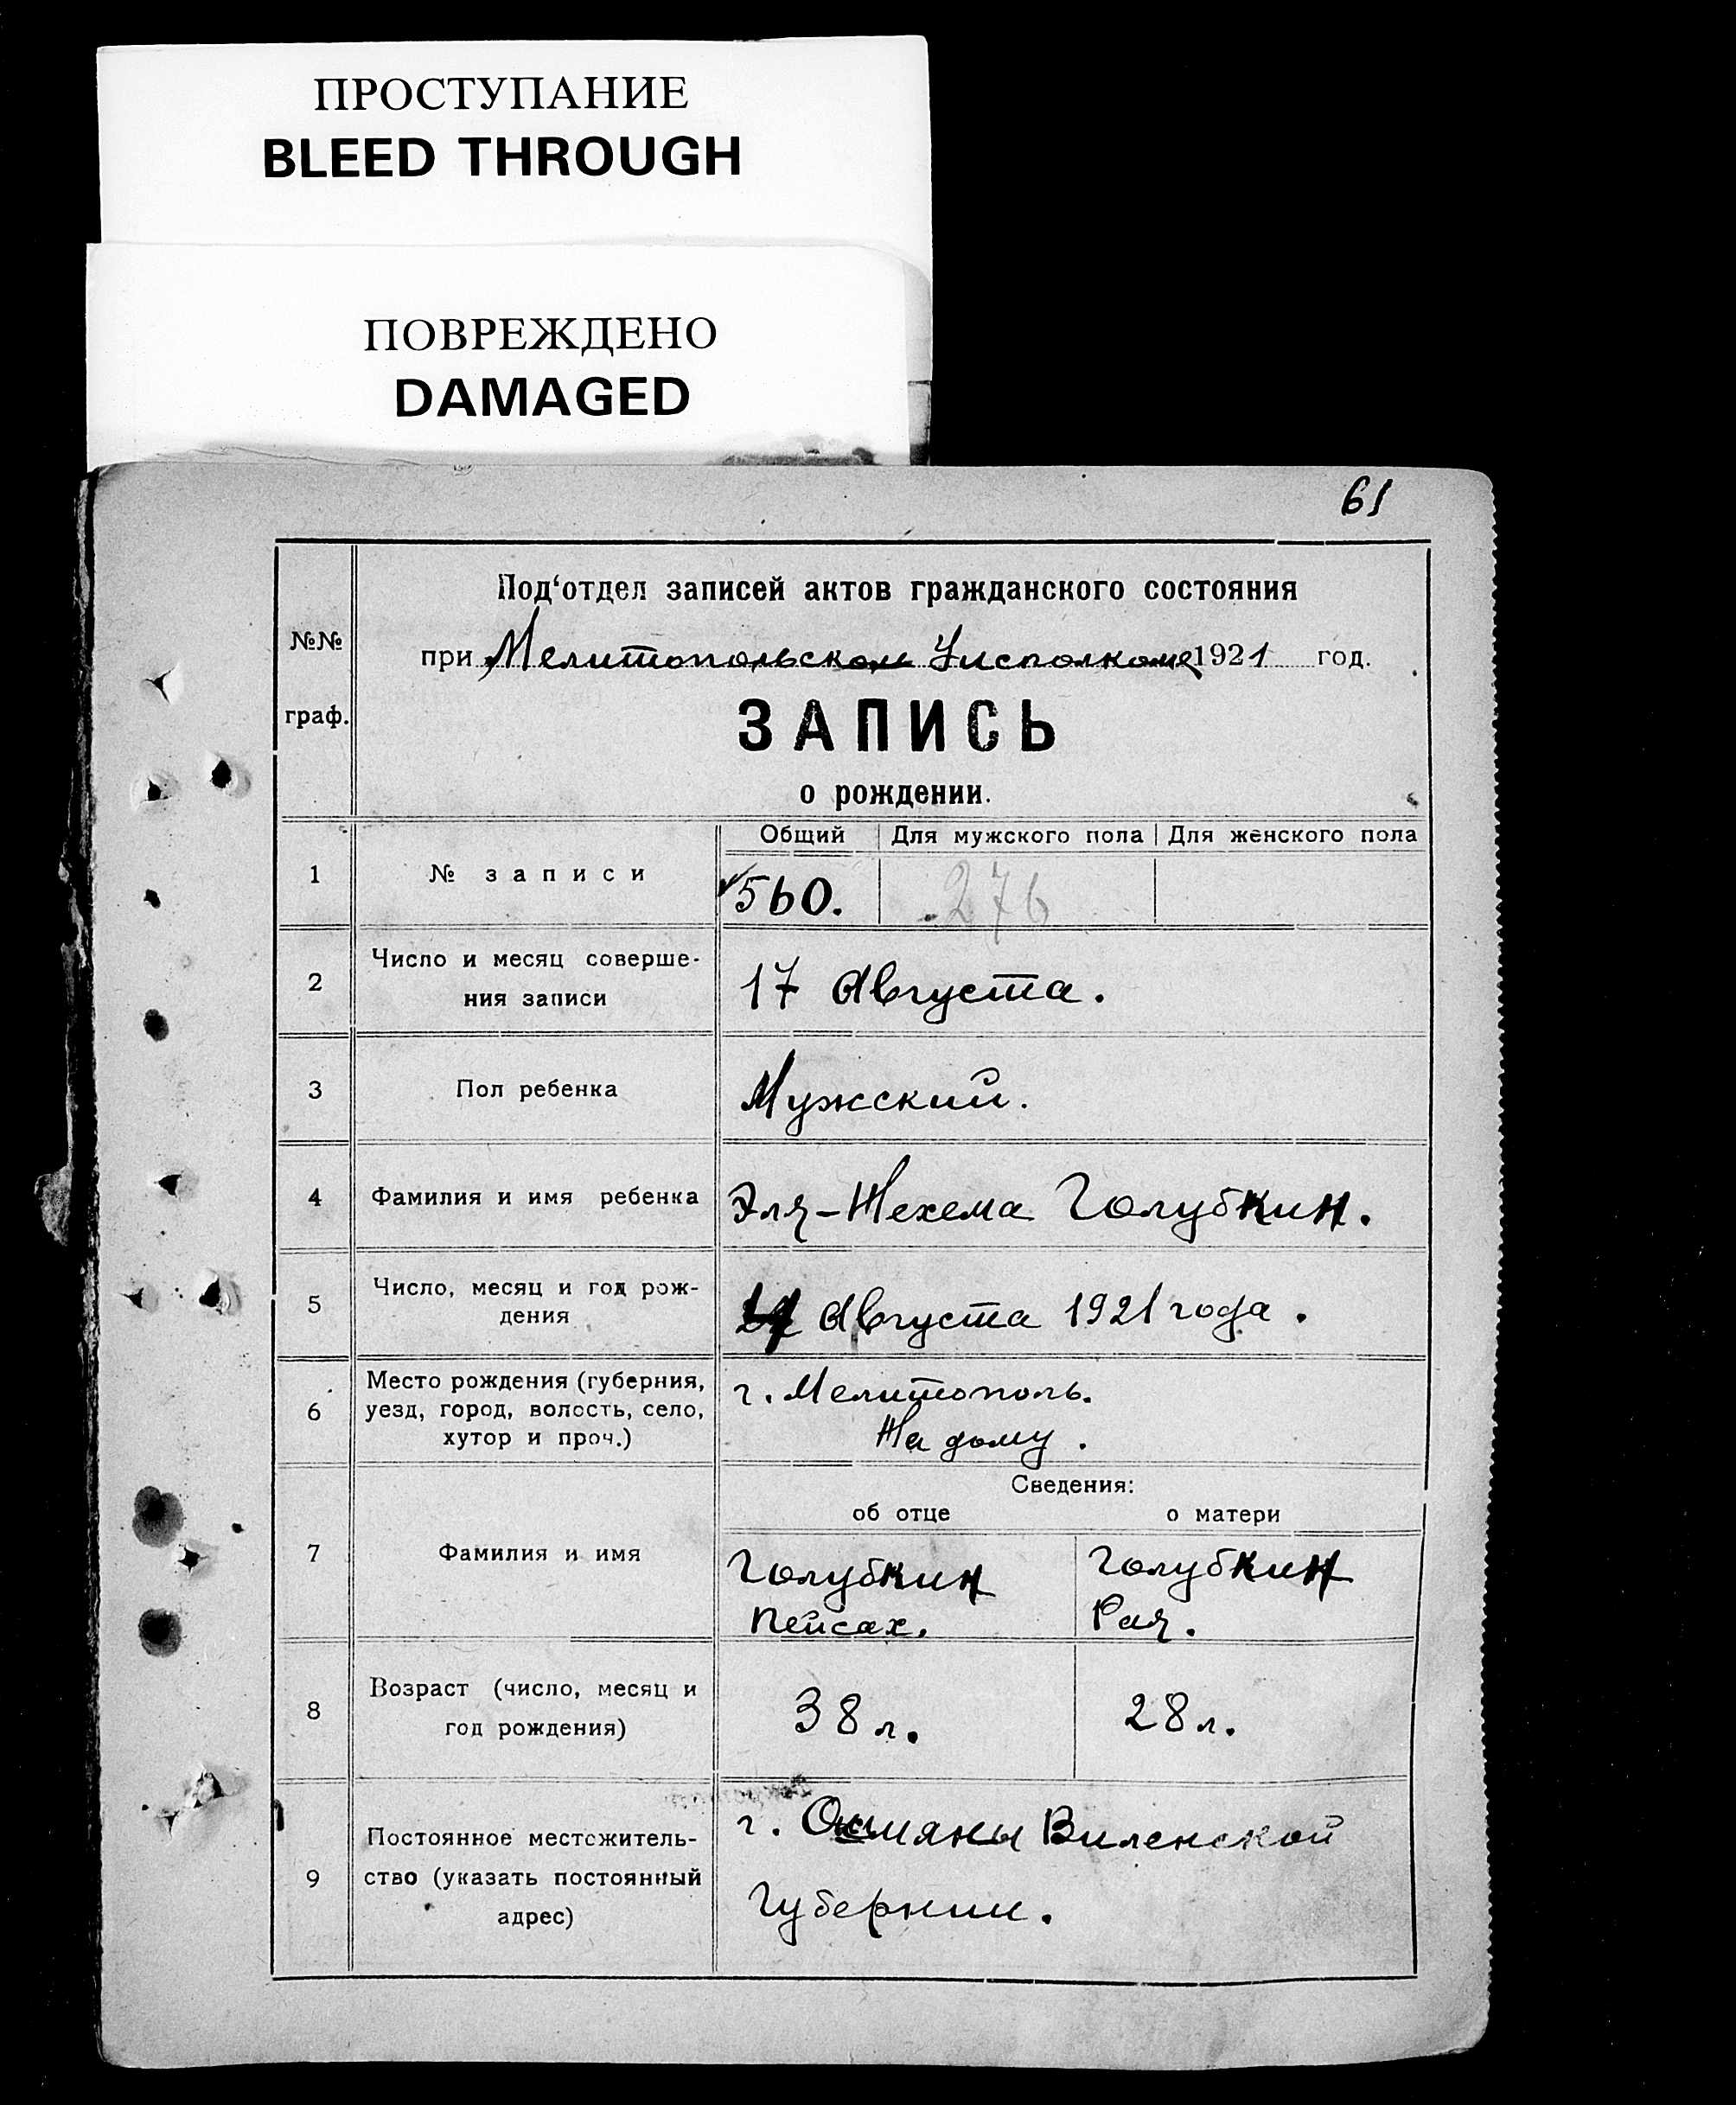 ПРОСТУПАНИЕ
BLEED THROUGH
ПОВРЕЖДЕНО
DAMAGED
61
№№
граф.
Под‘отдел записей актов гражданского состояния
при Мелитопольском Уисполкоме 1921 год.
ЗАПИСЬ
о рождении.
Общий Для мужского пола Для женского пола
1 № записи 560. 276
2 Число и месяц соверше-
ния записи
17 Августа.
3 Пол ребенка Мужский.
4 Фамилия и имя ребенка Эля-Нехема Голубкин.
5 Число, месяц и год рож-
дения
Августа 1921 года.
6 Место рождения (губерния,
уезд, город, волость, село,
хутор и проч.)
г. Мелитополь.
На дому.
Сведения:
об отце о матери
7 Фамилия и имя
Голубкин Голубкин
Пейсах. Рая.
8 Возраст (число, месяц и
год рождения)
38 л. 28 л.
9 Постоянное местожитель-
ство (указать постоянный
адрес)
г. Ошмяны Виленской
Губернии.